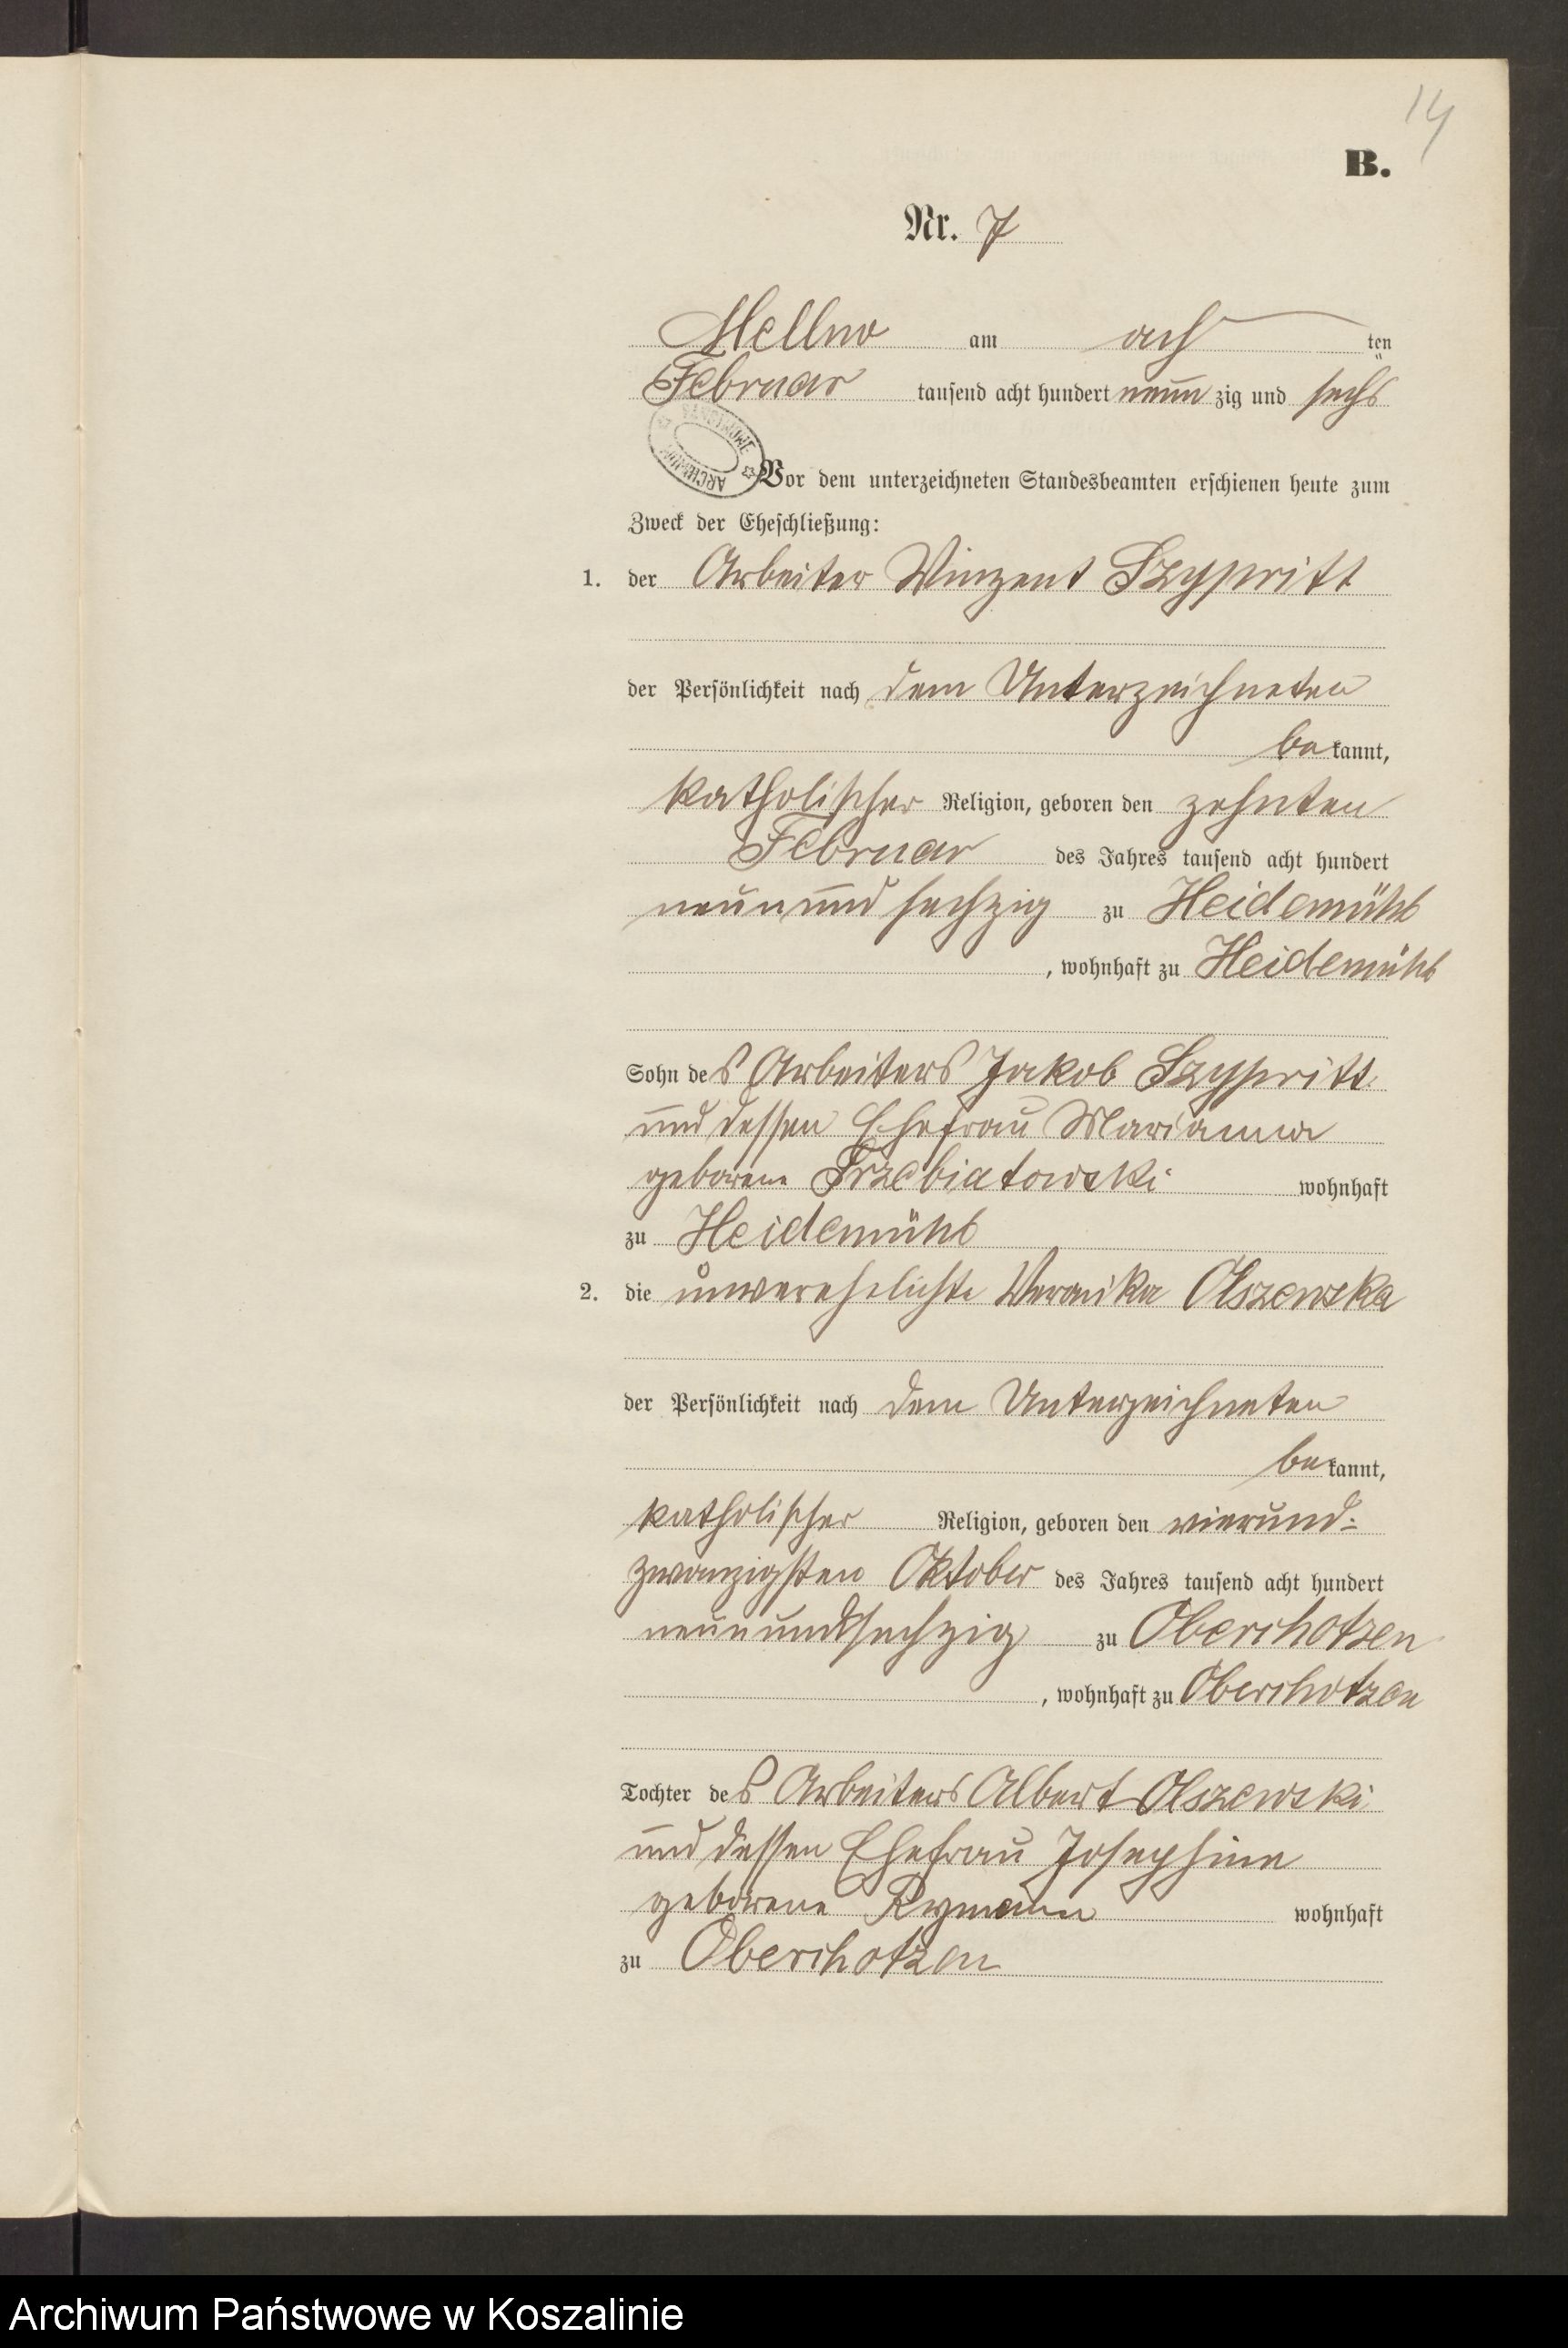 14
B.
Nr. 7
Mellno am ach ten
Februar tausend acht hundert neun zig und sechs
ARCHIWUM
Vor dem unterzeichneten Standesbeamten erschienen heute zum
Zweck der Eheschließung:
1. der Arbeiter Winzent Szypritt
der Persönlichkeit nach dem Unterzeichneten
be kannt,
katholischer Religion, geboren den zehnten
Februar des Jahres tausend acht hundert
neunund sechzig zu Heidemühl
, wohnhaft zu Heidemühl
Sohn des Arbeiters Jakob Szypritt
und dessen Ehefrau Marianna
geborene Trzebiatowski wohnhaft
zu Heidemühl
2. die unverehelichte Veronika Olszewska
der Persönlichkeit nach dem Unterzeichneten
be kannt,
katholischer Religion, geboren den vierund-
zwanzigsten Oktober des Jahres tausend acht hundert
neunundsechzig zu Oberchotzen
, wohnhaft zu Oberchotzen
Tochter des Arbeiters Albert Olszewski
und dessen Ehefrau Josephine
geborene Rymann wohnhaft
zu Oberchotzen
Archiwum Państwowe w Koszalinie